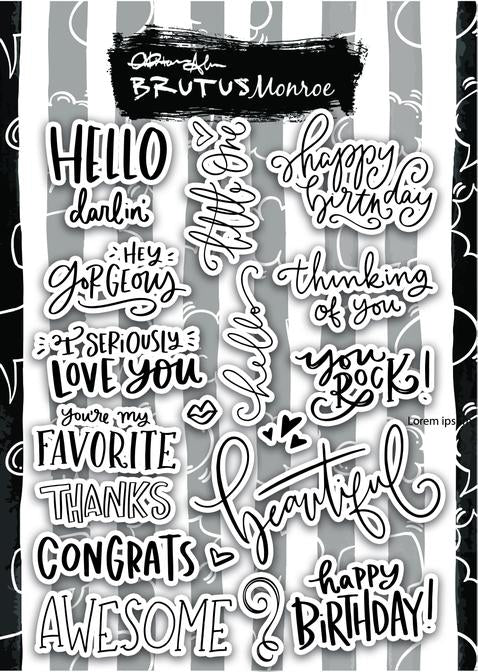 BRUTUS Monroe
HELLO
darlin'
little one
happy
birthday
HEY
GORGEOUS
hello
thinking
of you
I SERIOUSLY
LOVE YOU
you ROCK!
you're my
FAVORITE
Lorem ips
THANKS
beautiful
CONGRATS
happy
BIRTHDAY!
AWESOME